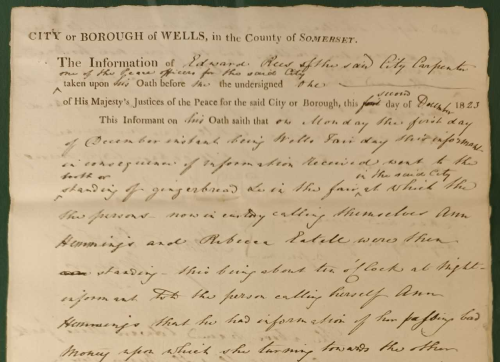 CITY or BOROUGH of WELLS, in the County of SOMERSET.
The Information of Edward Rees of the said City Carpenter
one of the Peace officers for the said City
taken upon his Oath before me the undersigned One
second
of His Majesty's Justices of the Peace for the said City or Borough, this day of December 1823
This Informant on his Oath saith that on Monday the first day
of December instant being Wells Fair day this informant
in consequence of Information received went to the
booth or in the said City
standing of gingerbread &c in the fair at which the
the persons now in custody calling themselves Ann
Hemmings and Rebecca were then
standing - this being about ten o'Clock at Night -
informant told the person calling herself Ann
Hemmings that he had information of her passing bad
Money upon which she turning towards the other